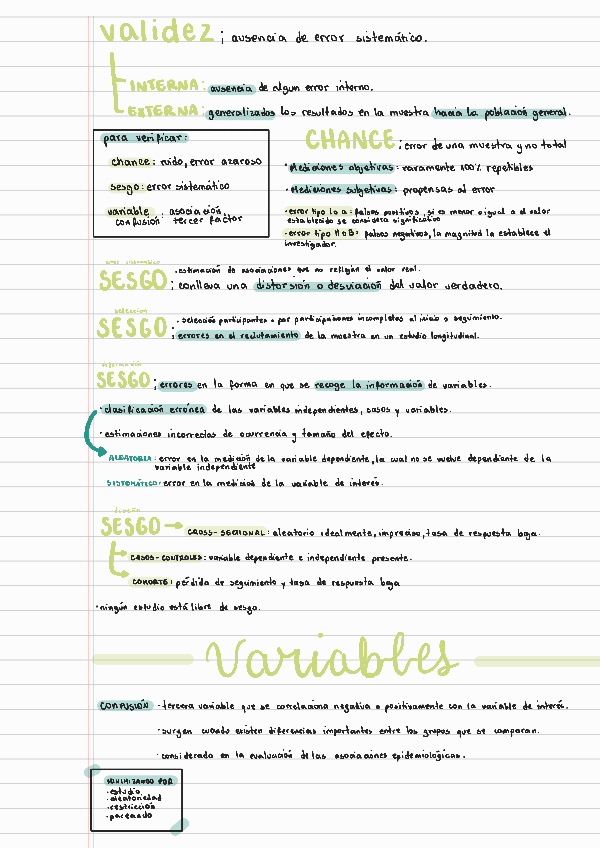 validez ; ausencia de error sistemático.
INTERNA: ausencia de algun error interno.
EXTERNA: generalizados los resultados en la muestra hacia la población general.
para verificar:
chance: ruido, error azaroso
sesgo: error sistemático
variable confusión : asociación, tercer factor
CHANCE ; error de una muestra y no total
·Mediciones objetivas: raramente 100% repetibles
·Mediciones subjetivas: propensas al error
·error tipo I o a: falsos positivos, si es menor o igual a el valor
establecido se considera significativo
·error tipo II o B: falsos negativos, la magnitud la establece el
investigador.
error sistemático
SESGO
·estimación de asociaciones que no reflejan el valor real.
; conlleva una distorsión o desviación del valor verdadero.
selección
SESGO
·selección participantes o por participaciones incompletas al inicio o seguimiento.
; errores en el reclutamiento de la muestra en un estudio longitudinal.
información
SESGO ; errores en la forma en que se recoge la información de variables.
·clasificación errónea de las variables independientes, casos y variables.
·estimaciones incorrectas de ocurrencia y tamaño del efecto.
ALEATORIA: error en la medición de la variable dependiente, la cual no se vuelve dependiente de la
variable independiente
SISTEMÁTICO: error en la medición de la variable de interés.
diseño
SESGO → CROSS-SECIONAL: aleatorio idealmente, impreciso, tasa de respuesta baja.
CASOS-CONTROLES: variable dependiente e independiente presente.
COHORTE: pérdida de seguimiento y tasa de respuesta baja
·ningún estudio está libre de sesgo.
Variables
CONFUSIÓN ·tercera variable que se correlaciona negativa o positivamente con la variable de interés.
·surgen cuando existen diferencias importantes entre los grupos que se comparan.
·considerada en la evaluación de las asociaciones epidemiológicas.
MINIMIZANDO POR
·estudio
·aleatoriedad
·restricción
·pareando